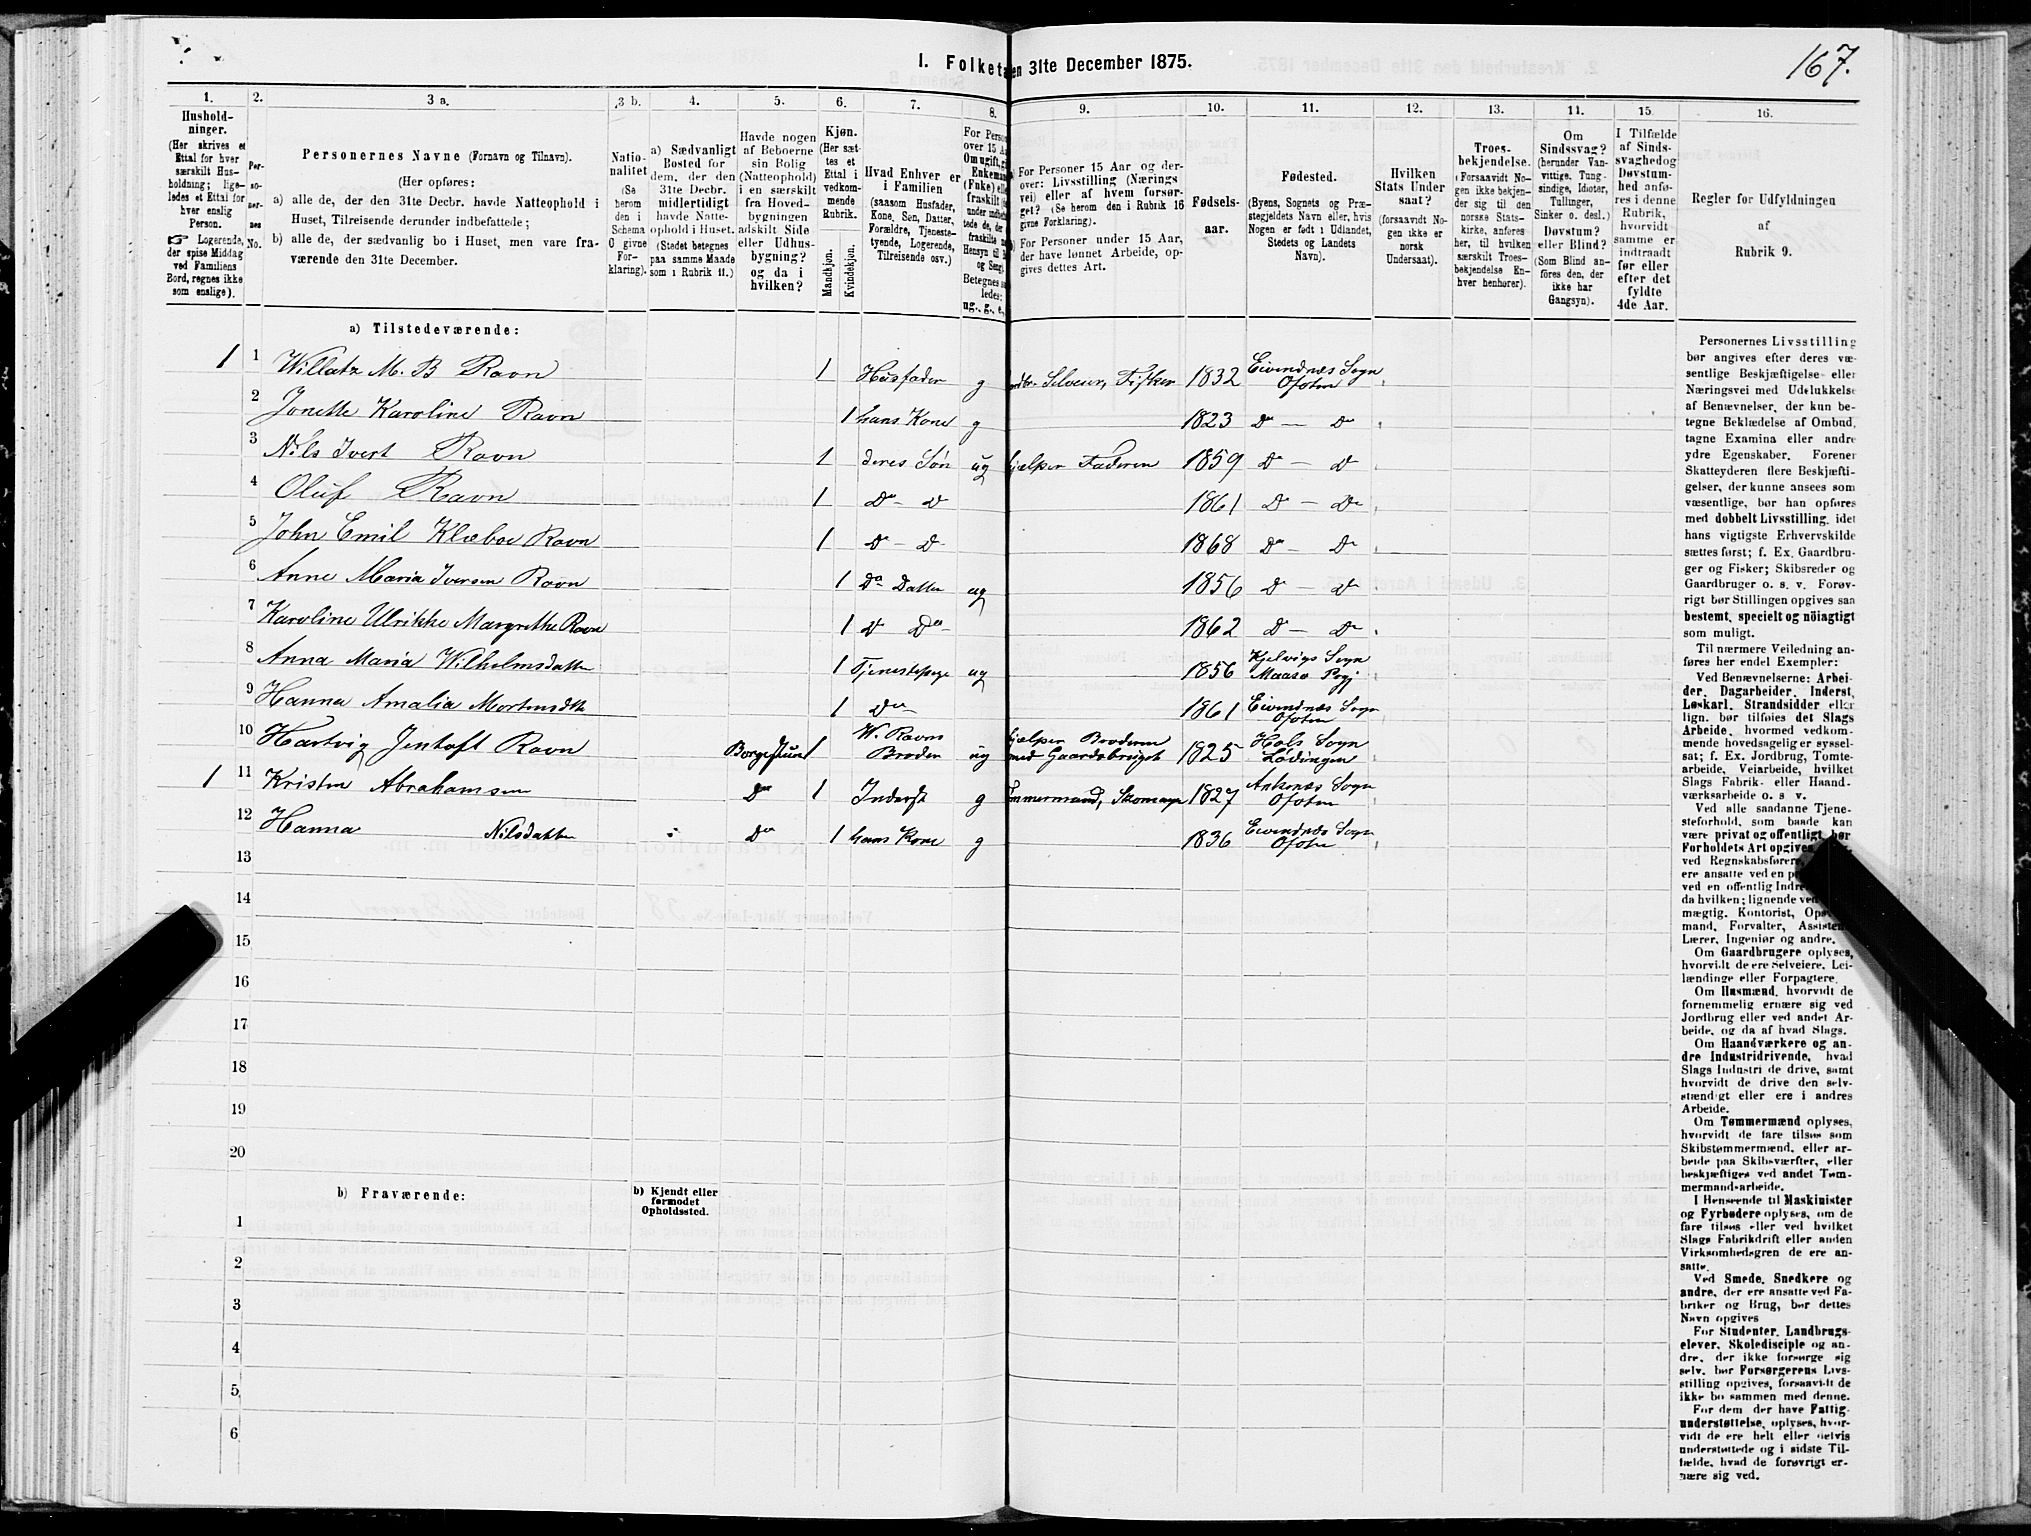 167.
1. Folketa en 31te December 1875.
1. 2. 3 a. 3 b. 4. 5. 6. 7. 8. 9. 10. 11. 12. 13. 11. 15. 16.
Hushold-
ninger.
(Her skrives et
Ettal for hver
særskilt Hus-
holdning; lige-
ledes et Ettal for
hver enslig
Person.
Logerende,
der spise Middag
ved Familiens
Bord, regnes ikke
som enslige).
Per-
so-
ner-
nes
No.
Personernes Navne (Fornavn og Tilnavn).
(Her opføres:
a) alle de, der den 31te Decbr. havde Natteophold i
Huset, Tilreisende derunder indbefattede;
b) alle de, der sædvanlig bo i Huset, men vare fra-
værende den 31te December.
Natio-
nalitet
(Se
herom
den i
Schema
C givne
For-
klaring).
a) Sædvanligt
Bosted for
dem, der den
31te Decbr.
midlertidigt
havde Natte-
ophold i Huset.
(Stedet betegnes
paa samme Maade
som i Rubrik 11.)
Havde nogen
af Beboerne
sin Bolig
(Natteophold)
i en særskilt
fra Hoved-
bygningen
adskilt Side
eller Udhus-
bygning?
og da i
hvilken?
Kjøn.
(Her sæt-
tes et
Ettal i
vedkom-
mende
Rubrik.
Mandkjøn.
Kvindekjøn.
Hvad Enhver er
i Familien
(saasom Husfader,
Kone, Søn, Datter,
Forældre, Tjeneste-
tyende, Logerende,
Tilreisende osv.)
For Person
over 15 A
Om ugift, gi
Enkeman
(Enke) elle
fraskilt
under indbe
tede de, der
fraskilte
Hensyn til
og Seng).
Betegnes s
ledes:
ug., g., e.,
For Personer 15 Aar og der-
over: Livsstilling (Nærings
vei) eller af hvem forsør-
get? (Se herom den i Rubrik 16
givne Forklaring).
For Personer under 15 Aar,
der have lønnet Arbeide, op-
gives dettes Art.
Fødsels-
aar.
Fødested.
(Byens, Sognets og Præ-
stegjeldets Navn eller, hvis
Nogen er født i Udlandet,
Stedets og Landets
Navn).
Hvilken
Stats Under
saat?
(forsaavidt No-
gen ikke er
norsk
Undersaat).
Troes-
bekjendelse.
(Forsaavidt No-
gen ikke bekjen-
der sig til den
norske Stats-
kirke, anføres
her, til hvilken
særskilt Troes-
bekjendelse En-
hver henhører).
Om
Sindssvag?
(herunder Van-
vittige, Tung-
sindige, Idioter,
Tullinger,
Sinker o. desl.)
Døvstum?
eller Blind?
(Som Blind an-
føres den, der
ikke har
Gangsyn).
I Tilfælde
af Sinds-
svaghedog
Døvstum-
hed anfø-
res i denne
Rubrik,
hvorvidt
samme er
indtraadt
før eller
efter det
fyldte
4de Aar.
Regler for Udfyldningen
af
Rubrik 9.
a) Tilstedeværende:
1 1 Willatz M. B Ravn 1 Husfader g Selveier, Fisker 1832 Eivindnæs Sogn Ofoten
2 Jonette Karoline Ravn 1 hans Kone g 1823 Do — Do
3 Nils Ivert Ravn 1 deres Søn ug hjælper Faderen 1859 Do — Do
4 Oluf Ravn 1 Do — Do 1861 Do — Do
5 John Emil Klæboe Ravn 1 Do — Do 1868 Do — Do
6 Anne Maria Iversen Ravn 1 Do Datter ug 1856 Do — Do
7 Karoline Ulrikke Margrethe Ravn 1 Do Do 1862 Do — Do
8 Anna Maria Wilhelmsdatter 1 Tjenestepige ug 1856 Kjelvigs Sogn Maasø Pgj
9 Hanna Amalia Mortensdtr 1 Do 1861 Eivindnæs Sogn Ofoten
10 Hartvig Jentoft Ravn Borgestuen 1 W. Ravns Broder ug hjælper Broderen med Gaardsbruget 1825 Hols Sogn Lødingen
1 11 Kristen Abrahamsen Do 1 Inderst g Tømmermand, Skomager 1827 Ankenæs Sogn Ofoten
12 Hanna Nilsdatter Do 1 hans Kone g 1836 Eivindnæs Sogn Ofoten
13
14
15
16
17
18
19
20
b) Fraværende:
b) Kjendt eller
formodet
Opholdssted.
1
2
3
4
5
6
Personernes Livsstilling
bør angives efter deres væ-
sentlige Beskjæftigelse eller
Næringsvei med Udelukkelse
af Benævnelser, der kun be-
tegne Beklædelse af Ombud,
tagne Examina eller andre
ydre Egenskaber. Forener
Skatteyderen flere Beskjæfti-
gelser, der kunne ansees som
væsentlige, bør han opføres
med dobbelt Livsstilling, idet
hans vigtigste Erhvervskilde
sættes først; f. Ex. Gaardbru-
ger og Fisker; Skibsreder og
Gaardbruger o. s. v. Forøv-
rigt bør Stillingen opgives saa
bestemt, specielt og nöiagtigt
som muligt.
Til nærmere Veiledning an-
føres her endel Exempler:
Ved Benævnelserne: Arbei-
der, Dagarbeider, Inderst,
Løskarl, Strandsidder eller
lign. bør tilføies det Slags
Arbeide, hvormed vedkom-
mende hovedsagelig er syssel-
sat; f. Ex. Jordbrug, Tomte-
arbeide, Veiarbeide, hvilket
Slags Fabrik- eller Haand-
værksarbeide o. s. v.
Ved alle saadanne Tjene-
steforhold, som baade kan
være privat og offentligt, bør
Forholdets Art opgives
ved Regnskabsførere,
ere ansatte ved en p
ved en offentlig Indre
da hvilken; lignende ved
mægtig, Kontorist, Ops
mand, Forvalter, Assisten
Lærer, Ingeniør og andre.
Om Gaardbrugere oplyses,
hvorvilt de ere Selveiere, Lei-
lændinge eller Forpagtere.
Om Husmænd, hvorvidt de
fornemmelig ernære sig ved
Jordbrug eller ved andet Ar-
beide, og da af hvad Slags.
Om Haandværkere og an-
dre Industridrivende, hvad
Slags Industri de drive, samt
hvorvidt de drive den selv-
stændigt eller ere i andres
Arbeide.
Om Tømmermænd oplyses,
hvorvidt de fare tilsøs som
Skibstømmermænd, eller ar-
beide paa Skibsværfter, eller
beskjæftiges ved andet Tøm-
mermand-arbeide.
I Henseende til Maskinister
og Fyrbødere oplyses, om de
fare tilsøs eller ved hvilket
Slags Fabrikdrift eller anden
Virksomhedsgren de ere an-
satte.
Ved Smede, Snedkere og
andre, der ere ansatte ved Fa-
briker og Brug, bør dettes
Navn opgives
For Studenter, Landbrugs-
elever, Skoledisciple og an-
dre, der ikke forsørge sig
selv, bør Forsørgerens Livs-
stilling opgives, forsaavilt de
ikke bo sammen med denne.
For dem der have Fattig-
understøttelse, oplyses, hvor-
vidt de ere helt eller delvis
understøttede og i sidste Til-
fælde, hvad de forøvrigt er-
nære sig ved.